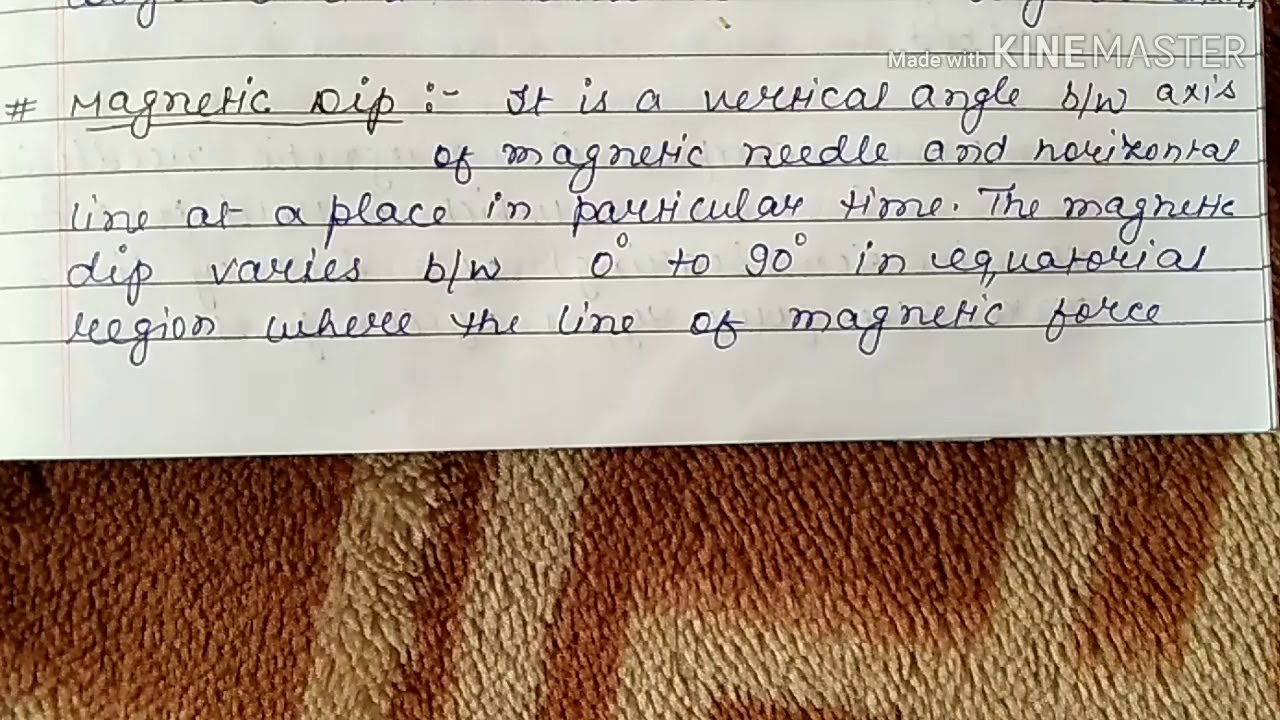 Made with KINEMASTER
# Magnetic Dip :- It is a vertical angle b/w axis
of magnetic needle and horizontal
line at a place in particular time. The magnetic
dip varies b/w 0° to 90° in equatorial
region where the line of magnetic force